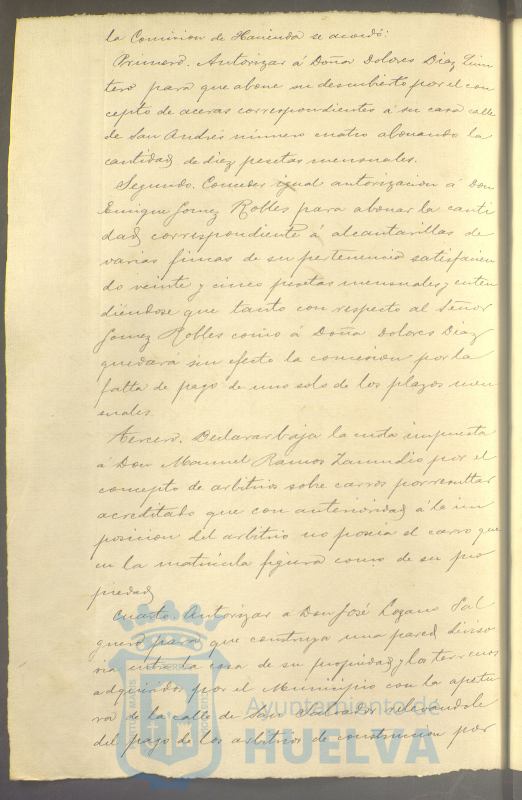 la Comision de Hacienda se acordó:
Primero. Autorizar á Doña Dolores Diaz Quin
tero para que abone su descubierto por el con
cepto de aceras correspondientes á su casa calle
de San Andrés número cuatro abonando la
cantidad de diez pesetas mensonales.
Segundo. Conceder igual autorizacion á Don
Enrique Gomez Robles para abonar la canti
dad correspondiente á alcantarillas de
varias fincas de su pertenencia satisfacien
do veinte y cinco pesetas mensuales y enten
diendose que tanto con respecto al Señor
Gomez Robles como á Doña Dolores Diaz
quedará sin efecto la concesion por la
falta de pago de uno solo de los plazos men
suales.
Tercero. Declarar baja la cuota impuesta
á Don Manuel Ramos Zamudio por el
concepto de arbitrios sobre carros por resultar
acreditado que con anterioridad á la im
posicion del arbitrio no poseia el carro que
en la matrícula figura como de su pro
piedad
Cuarto Autorizar a Don José Lozano Sal
guero para que construya una pared diviso
ria entre la casa de su propiedad y los terrenos
adquiridos por el Municipio con la apertu
ra de la calle de San Salvador relevandole
del pago de los arbitrios de construccion por
Ayuntamiento de
HUELVA